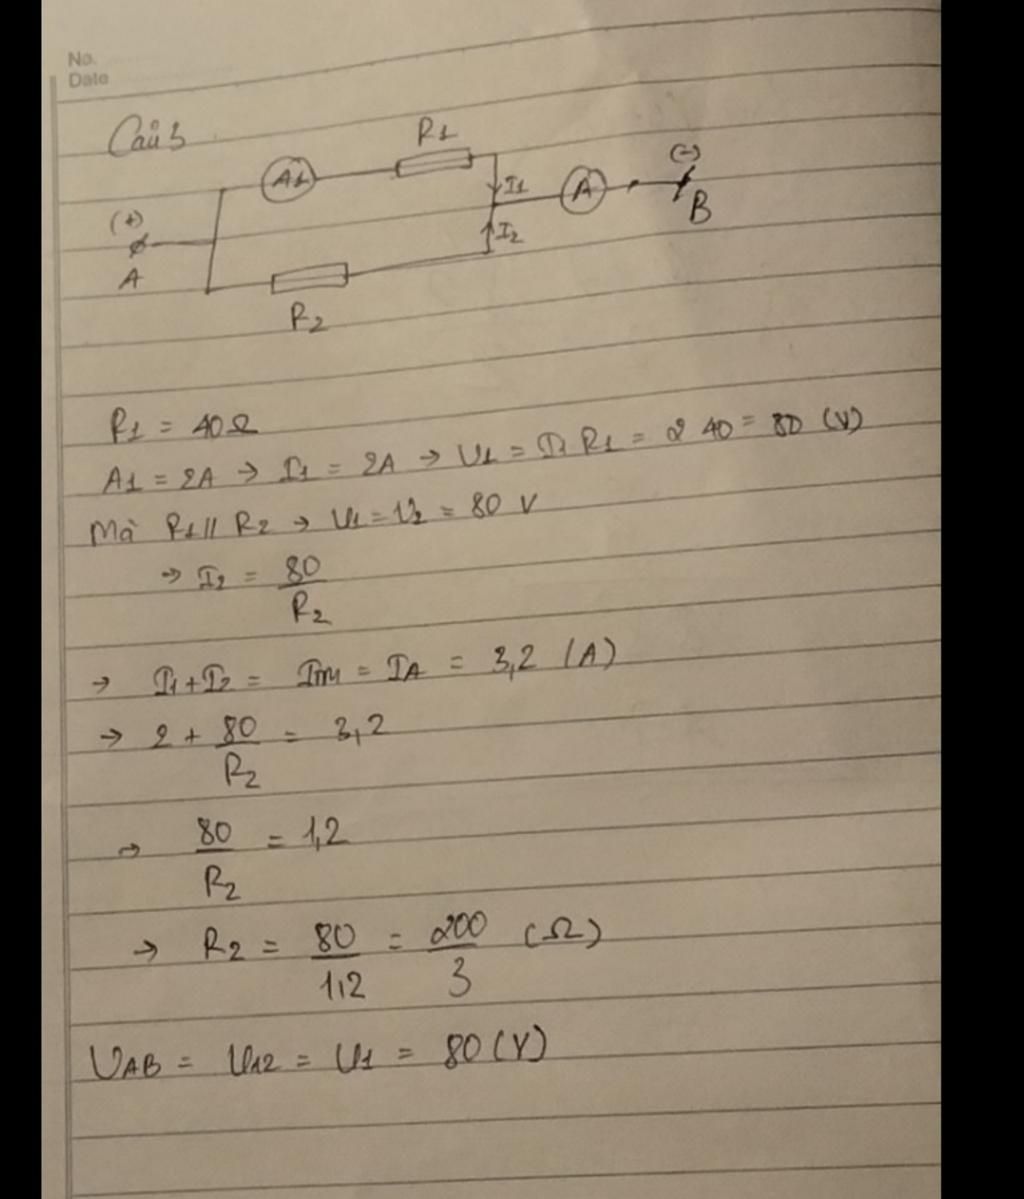 No.
Date
Câu 3
R1
A1
(-)
I1
A
(+)
B
I2
A
R2
R1 = 40Ω
A1 = 2A → I1 = 2A → U1 = I1 R1 = 2 40 = 80 (V)
Mà R1 // R2 → U1 = U2 = 80 V
→ I2 = 80/R2
→ I1 + I2 = Im = IA = 3,2 (A)
→ 2 + 80/R2 = 3,2
→ 80/R2 = 1,2
→ R2 = 80/1,2 = 200/3 (Ω)
UAB = U12 = U1 = 80 (V)